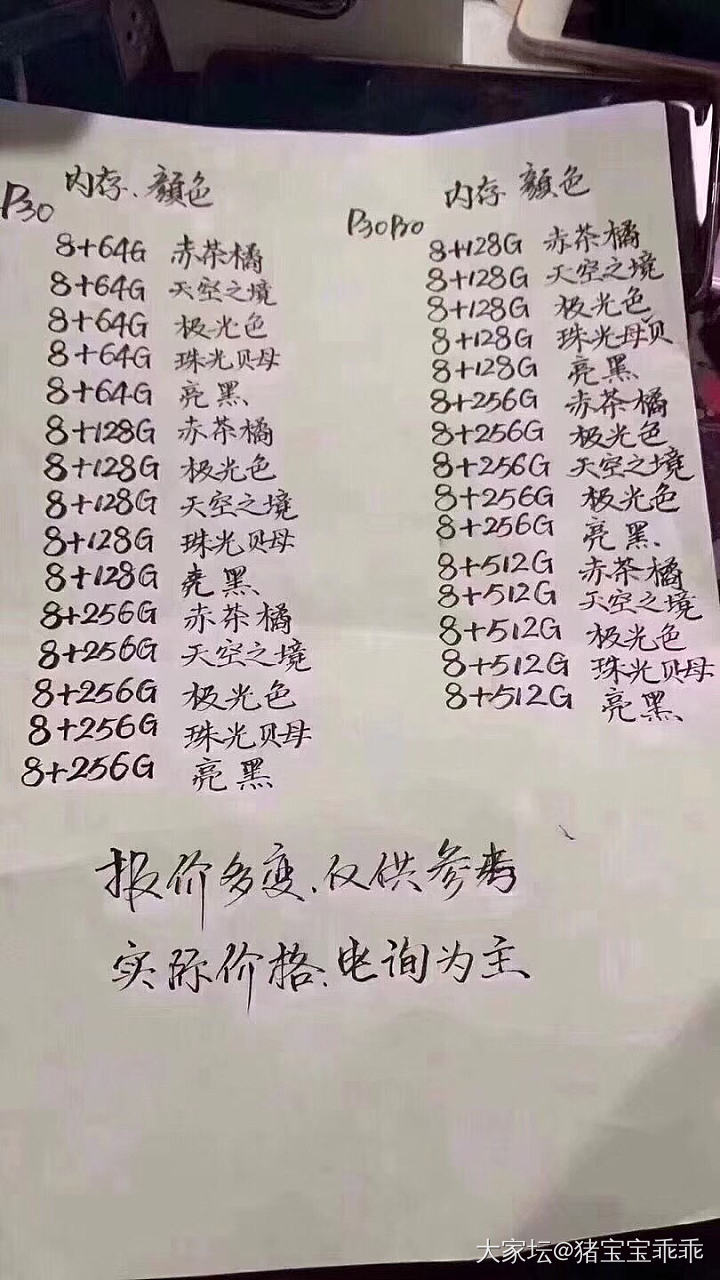 P30 内存、顏色
8+64G 赤茶橘
8+64G 天空之境
8+64G 极光色
8+64G 珠光贝母
8+64G 亮黑
8+128G 赤茶橘
8+128G 极光色
8+128G 天空之境
8+128G 珠光贝母
8+128G 亮黑
8+256G 赤茶橘
8+256G 天空之境
8+256G 极光色
8+256G 珠光贝母
8+256G 亮黑
P30Pro 内存 顏色
8+128G 赤茶橘
8+128G 天空之境
8+128G 极光色
8+128G 珠光母贝
8+128G 亮黑
8+256G 赤茶橘
8+256G 极光色
8+256G 天空之境
8+256G 极光色
8+256G 亮黑
8+512G 赤茶橘
8+512G 天空之境
8+512G 极光色
8+512G 珠光贝母
8+512G 亮黑
报价多变、仅供参考
实际价格、电询为主
大家坛@猪宝宝乖乖